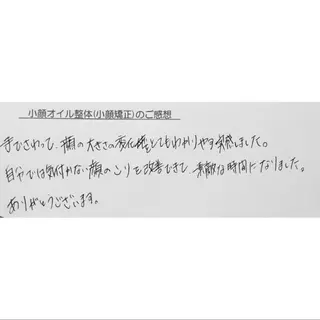 小顔オイル整体(小顔矯正)のご感想
手でさわって、顔の大きさの変化を とてもわかりやすく実感しました。
自分では気付かない顔のこりを改善できて、素敵な時間になりました。
ありがとうございます。